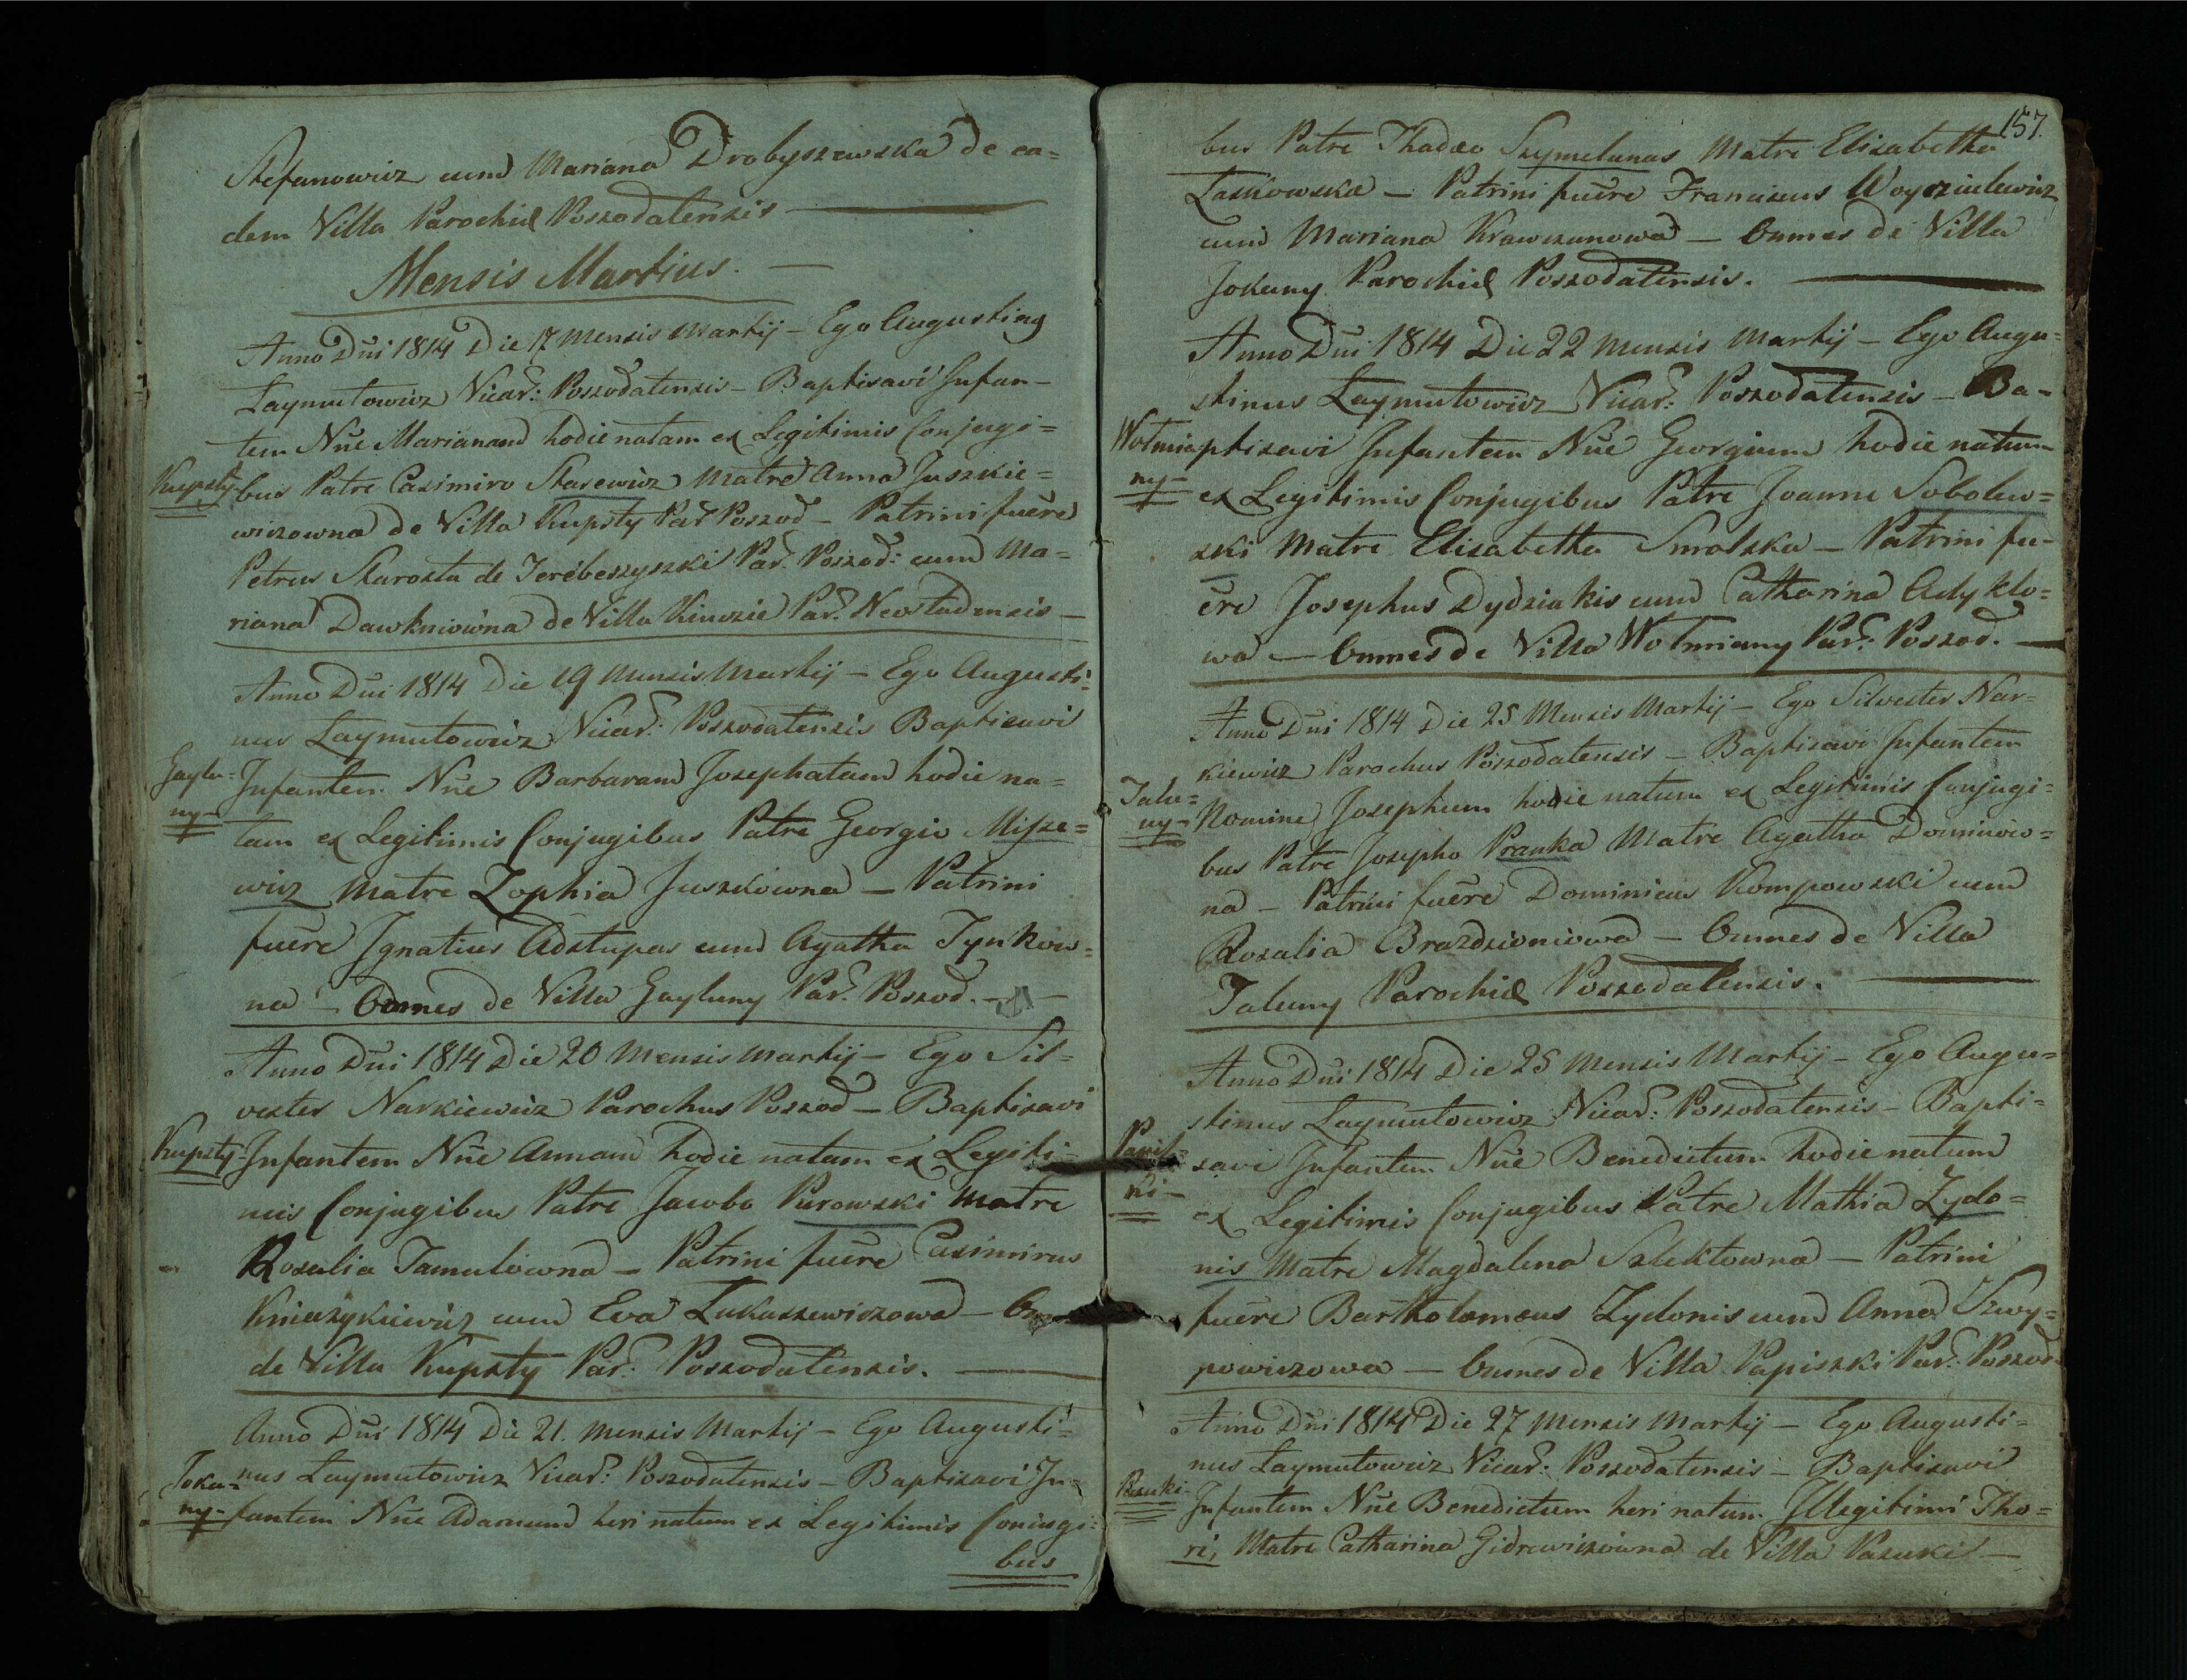 Stefanowicz cum Mariana Drobyszewska de ea=
dem Villa Parochiæ Poszodatensis
Mensis Martius. —
Anno Dni 1814 Die 17 Mensis Martij – Ego Augustinus
Laymutowicz Vicar: Poszodatensis – Baptisavi Infan-
tem Nne Marianam hodie natam ex Legitimis Conjugi=
Kupsty
bus Patre Casimiro Starewicz Matre Anna Juszkie=
wiczowna de Villa Kupsty Par Poszod – Patrini fuere
Petrus Starosta de Terebeszyszki Par. Poszod: cum Ma=
riana Dawkniowna de Villa Kinczie Par. Neostadensis —
Anno Dni 1814 Die 19 Mensis Martij – Ego Augusti=
nus Laymutowicz Vicar: Poszodatensis Baptisavi
Gaylu=
ny–
Infantem Nne Barbaram Josephatam hodie na=
tam ex Legitimis Conjugibus Patre Georgio Misze=
wicz Matre Zophia Juszkowna — Patrini
fuere Ignatius Adstupas cum Agatha Tynkow=
na — Omnes de Villa Gayluny Par. Poszod. —
Anno Dni 1814 Die 20 Mensis Martij – Ego Sil=
vester Narkiewicz Parochus Poszod – Baptisavi
Kupsty
Infantem Nne Annam hodie natam ex Legiti-
mis Conjugibus Patre Jacobo Purowski Matre
Rosalia Tamulowna – Patrini fuere Casimirus
cum Eva Lukaszewiczowa –
de Villa Kupsty Par: Poszodatensis. —
Anno Dni 1814 Die 21. Mensis Martij – Ego Augusti=
Joku=
ny–
nus Laymutowicz Vicar: Poszodatensis – Baptisavi In-
fantem Nne Adamum heri natum ex Legitimis Coniugi=
bus
157.
bus Patre Thadæo Szymelunas Matre Elisabetha
Laskowska — Patrini fuere Franciscus Woyczulewicz
cum Mariana Krawczunowa — Omnes de Villa
Jokuny Parochiæ Poszodatensis. —
Anno Dni 1814 Die 22 Mensis Martij – Ego Augu=
stinus Laymutowicz Vicar: Poszodatensis – Ba-
Wotmia
ny–
ptisavi Infantem Nne Georgium hodie natum
ex Legitimis Conjugibus Patre Joanne Sobolew=
ski Matre Elisabetha Smolska — Patrini fu-
ere Josephus Dydziakis cum Catharina Adyklo=
wa — Omnes de Villa Wotmiany Par: Poszod. —
Anno Dni 1814 Die 25 Mensis Martij – Ego Silvester Nar=
kiewicz Parochus Poszodatensis – Baptisavi Infantem
Talu=
ny–
Nomine Josephum hodie natum ex Legitimis Conjugi=
bus Patre Josepho Pranka Matre Agatha Dominow=
na – Patrini fuere Dominicus Kompowski cum
Rosalia Brazdzioniowa — Omnes de Villa
Taluny Parochiæ Poszodatensis. —
Anno Dni 1814 Die 25 Mensis Martij – Ego Augu=
stinus Laymutowicz Vicar: Poszodatensis – Bapti=
ki–
savi Infantem Nne Benedictum hodie natum
ex Legitimis Conjugibus Patre Mathia Zydo=
nis Matre Magdalena Szlektowna — Patrini
fuere Bartholomæus Zydonis cum Anna Szwy=
powiczowa — Omnes de Villa Papiszki Par: Poszod
Anno Dni 1814 Die 27 Mensis Martij – Ego Augusti=
nus Laymutowicz Vicar: Poszodatensis – Baptisavi
Pasuki–
Infantem Nne Benedictum heri natum Illegitimi Tho=
ri, Matre Catharina Gidrewiczowna de Villa Pasuki —